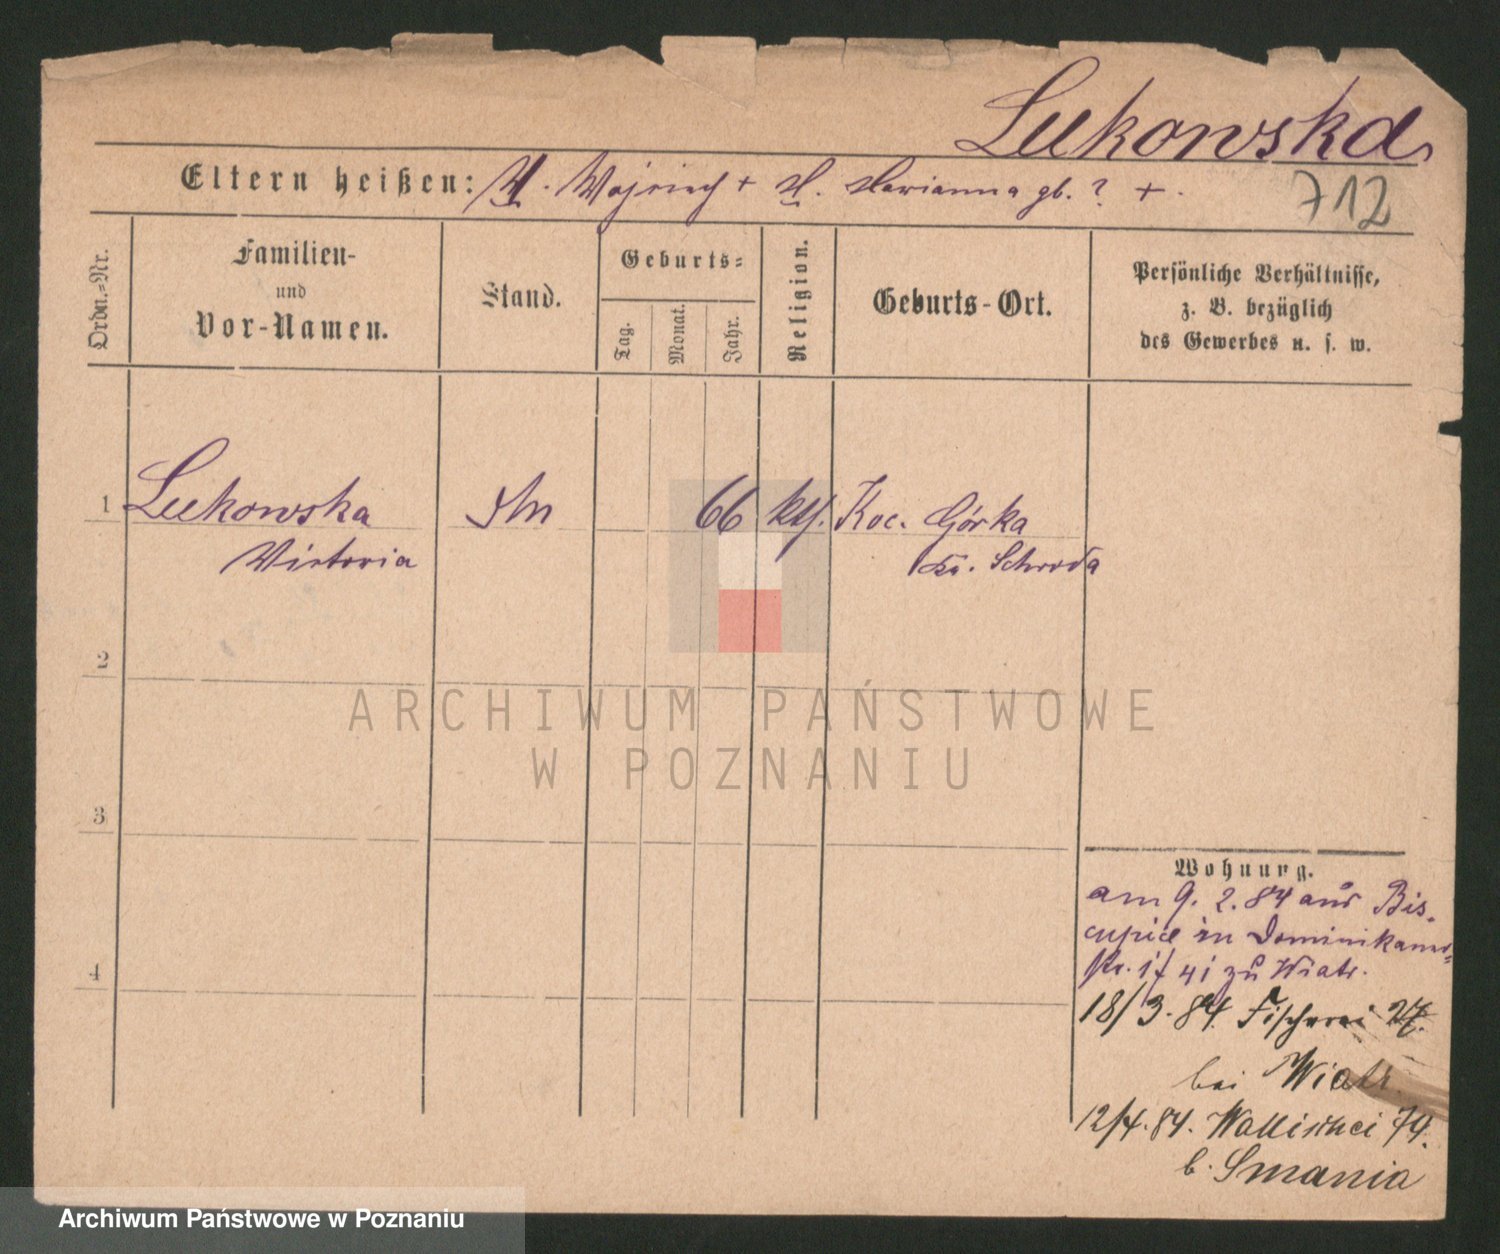 Lukowska
Eltern heißen: V. Wojciech + M. Marianna gb. ? +.
712
Ordn.=Nr.
Familien-
und
Vor-Namen.
Stand.
Geburts=
Tag.
Monat.
Jahr.
Religion.
Geburts-Ort.
Persönliche Verhältnisse,
z. B. bezüglich
des Gewerbes u. s. w.
1
Lukowska
66 kth. Koc. Górka
Victoria
Kr. Schroda
2
ARCHIWUM PAŃSTWOWE
W POZNANIU
3
Wohnung.
am 9. 2. 84 aus Bis-
cupice in Dominikaner-
str. zu Wiatr.
4
18/3. 84. Fischerei 27.
bei Wiatr.
12/4. 84. Wallischei 74.
b. Smania
Archiwum Państwowe w Poznaniu